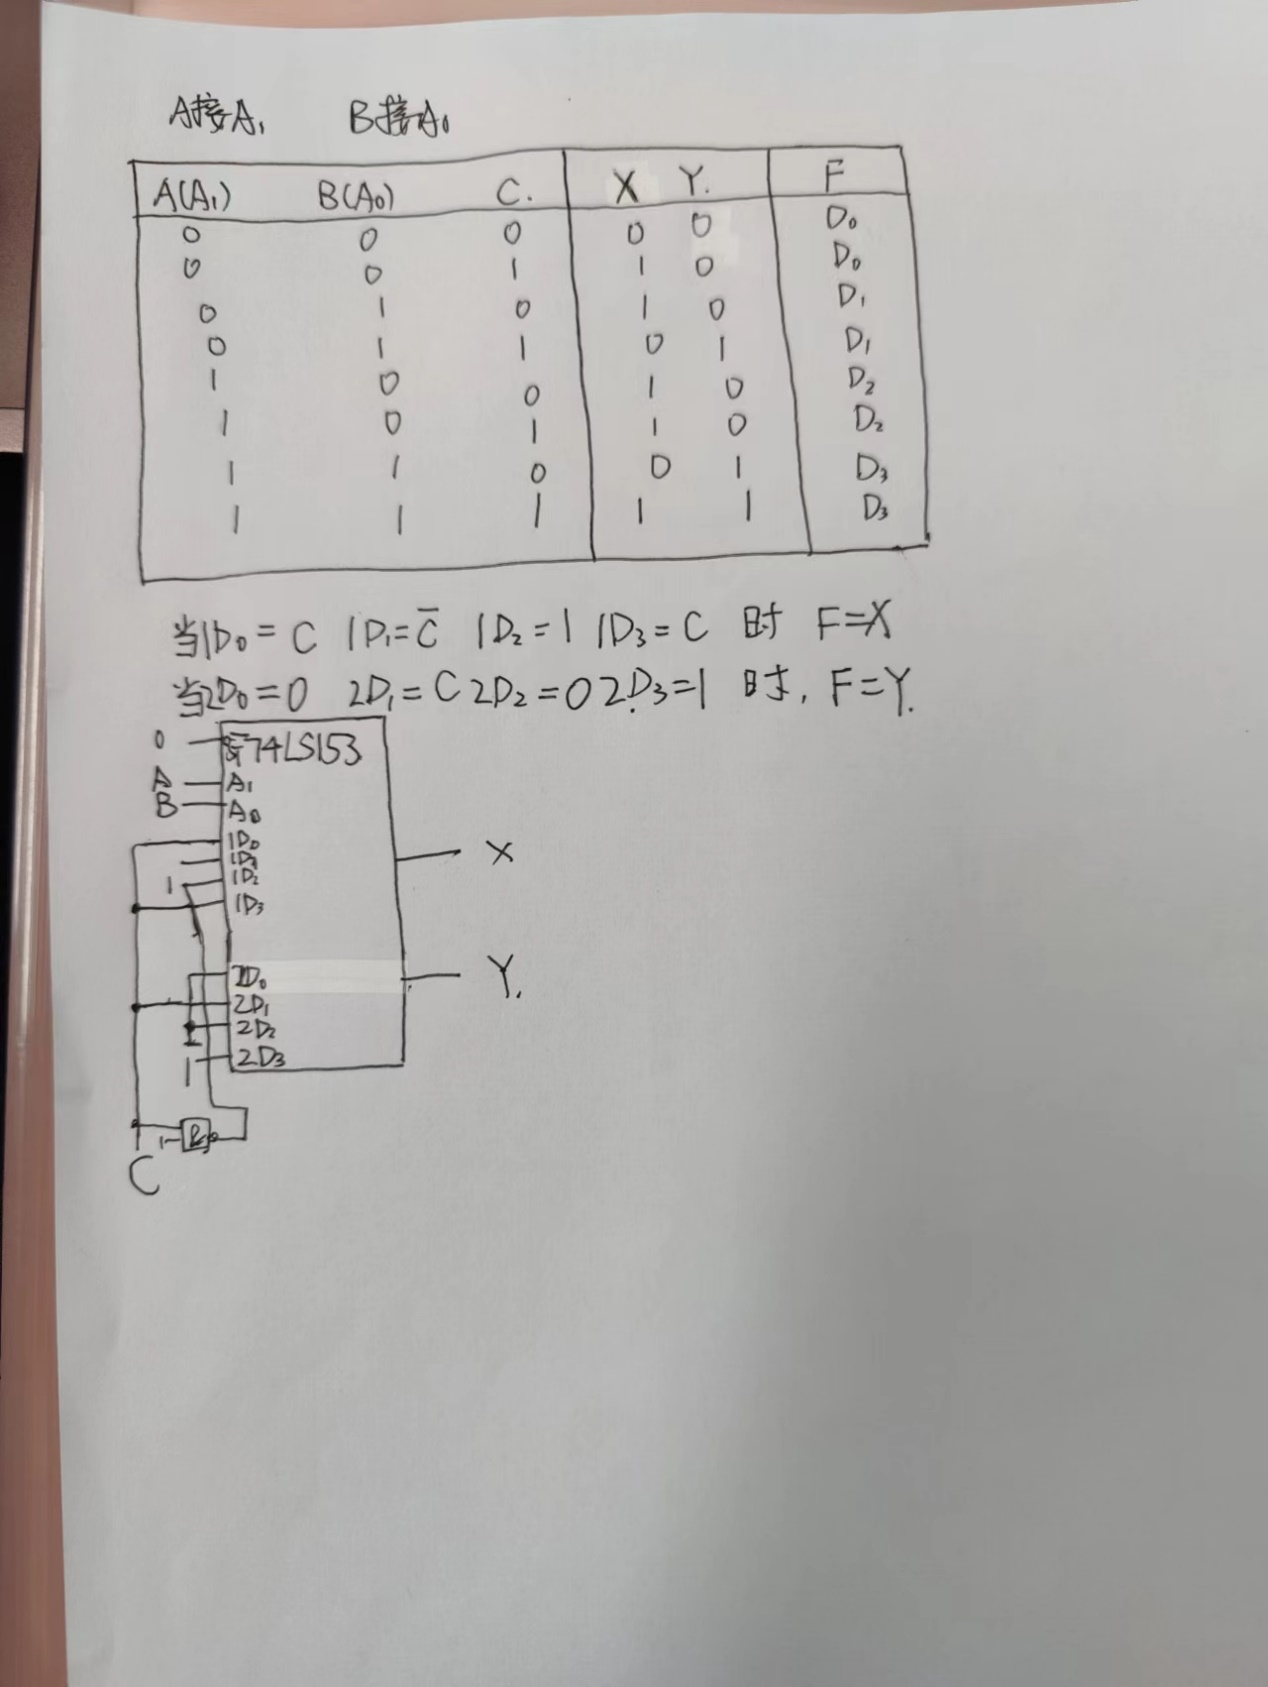 A接A₁ B接A₀
A(A₁) B(A₀) C. X Y. F
0 0 0 0 0 D₀
0 0 1 1 0 D₀
0 1 0 1 0 D₁
0 1 1 0 1 D₁
1 0 0 1 0 D₂
1 0 1 1 0 D₂
1 1 0 0 1 D₃
1 1 1 1 1 D₃
当1D₀=C 1D₁=C̅ 1D₂=1 1D₃=C 时 F=X
当2D₀=0 2D₁=C 2D₂=0 2D₃=1 时, F=Y.
0 74LS153
A A₁
B A₀
1D₀
X
1D₁
1 1D₂
1D₃
2D₀
Y.
2D₁
2D₂
1 2D₃
1 &
C